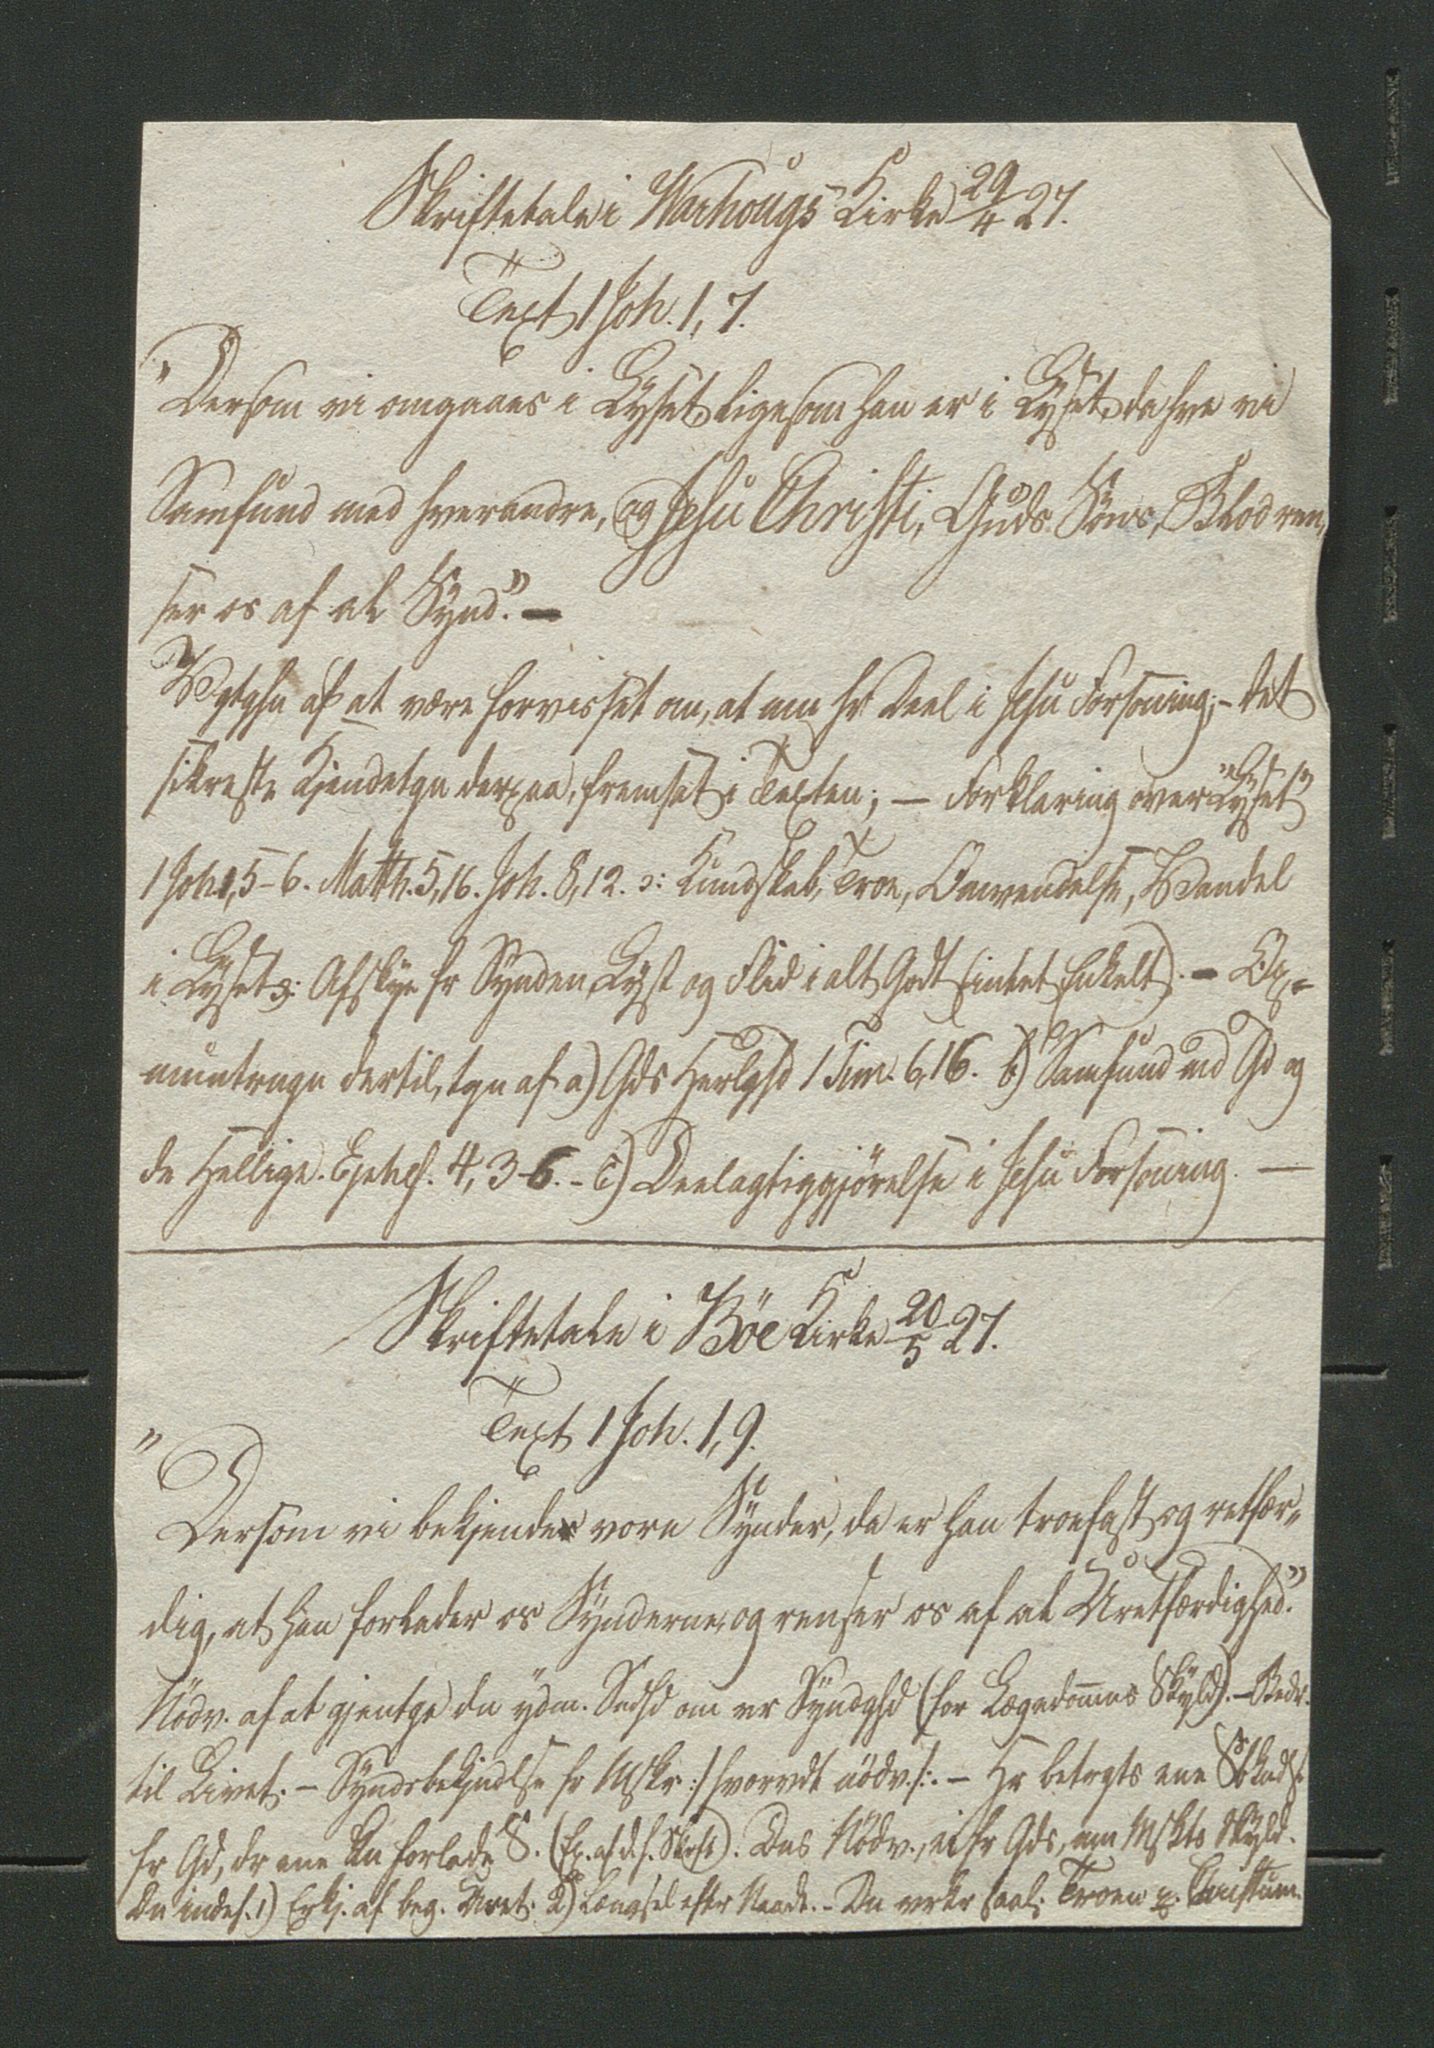 Skriftetale i Warhougs Kirke 29/4 27.
Text 1 Joh. 1, 7.
"Dersom vi omgaaes i Lyset ligesom han er i Lyset, da hve vi
Samfund med hverandre, og Jesu Christi, Guds Søns, Blod ren,
ser os af al Synd." —
Vgtghn af at være forvisset om, at mn hr Deel i Jesu Forsoning; - det
sikreste Kjendetgn derpaa, fremsat i Texten; — Forklaring over "Lyset"
1 Joh 1, 5-6. Matth. 5, 16. Joh. 8, 12. ɔ: Kundskab, Troe, Omvendelse, Vandel
i Lyset ɔ: Afskye fr Synden, Lyst og Flid i alt Godt (intet Enkelt). — Op-
muntrngn dertil, tgn af a) Gds Herlghd 1 Tim. 6, 16. b) Samfund md Gd og
de Hellige. Ephes. 4, 3-6. - c) Deelagtiggjørelse i Jesu Forsoning. —
Skriftetale i Böe Kirke 20/5 27.
Text 1 Joh. 1, 9.
"Dersom vi bekjende vore Synder, da er han troefast og retfær,,
dig, at han forlader os Synderne, og renser os af al Uretfærdighed."
Nödv. af at gjentge dn ydm. om vr Syndghd (for Lægedommens Skyld). - Bedr.
til Livet. — Syndsbekjndlse fr Mskr :/ hvorvdt nödv. /: — Hr betrgts ene
fr Gd, dr ene kn forlade S. Dns Nödv., ei fr Gds, mn Mskts Skyld.
Dn indeh. 1) Erkj. af beg. Uret. 2) Længsel eftr Naade. - Dn vrkr Troen p. Christum.